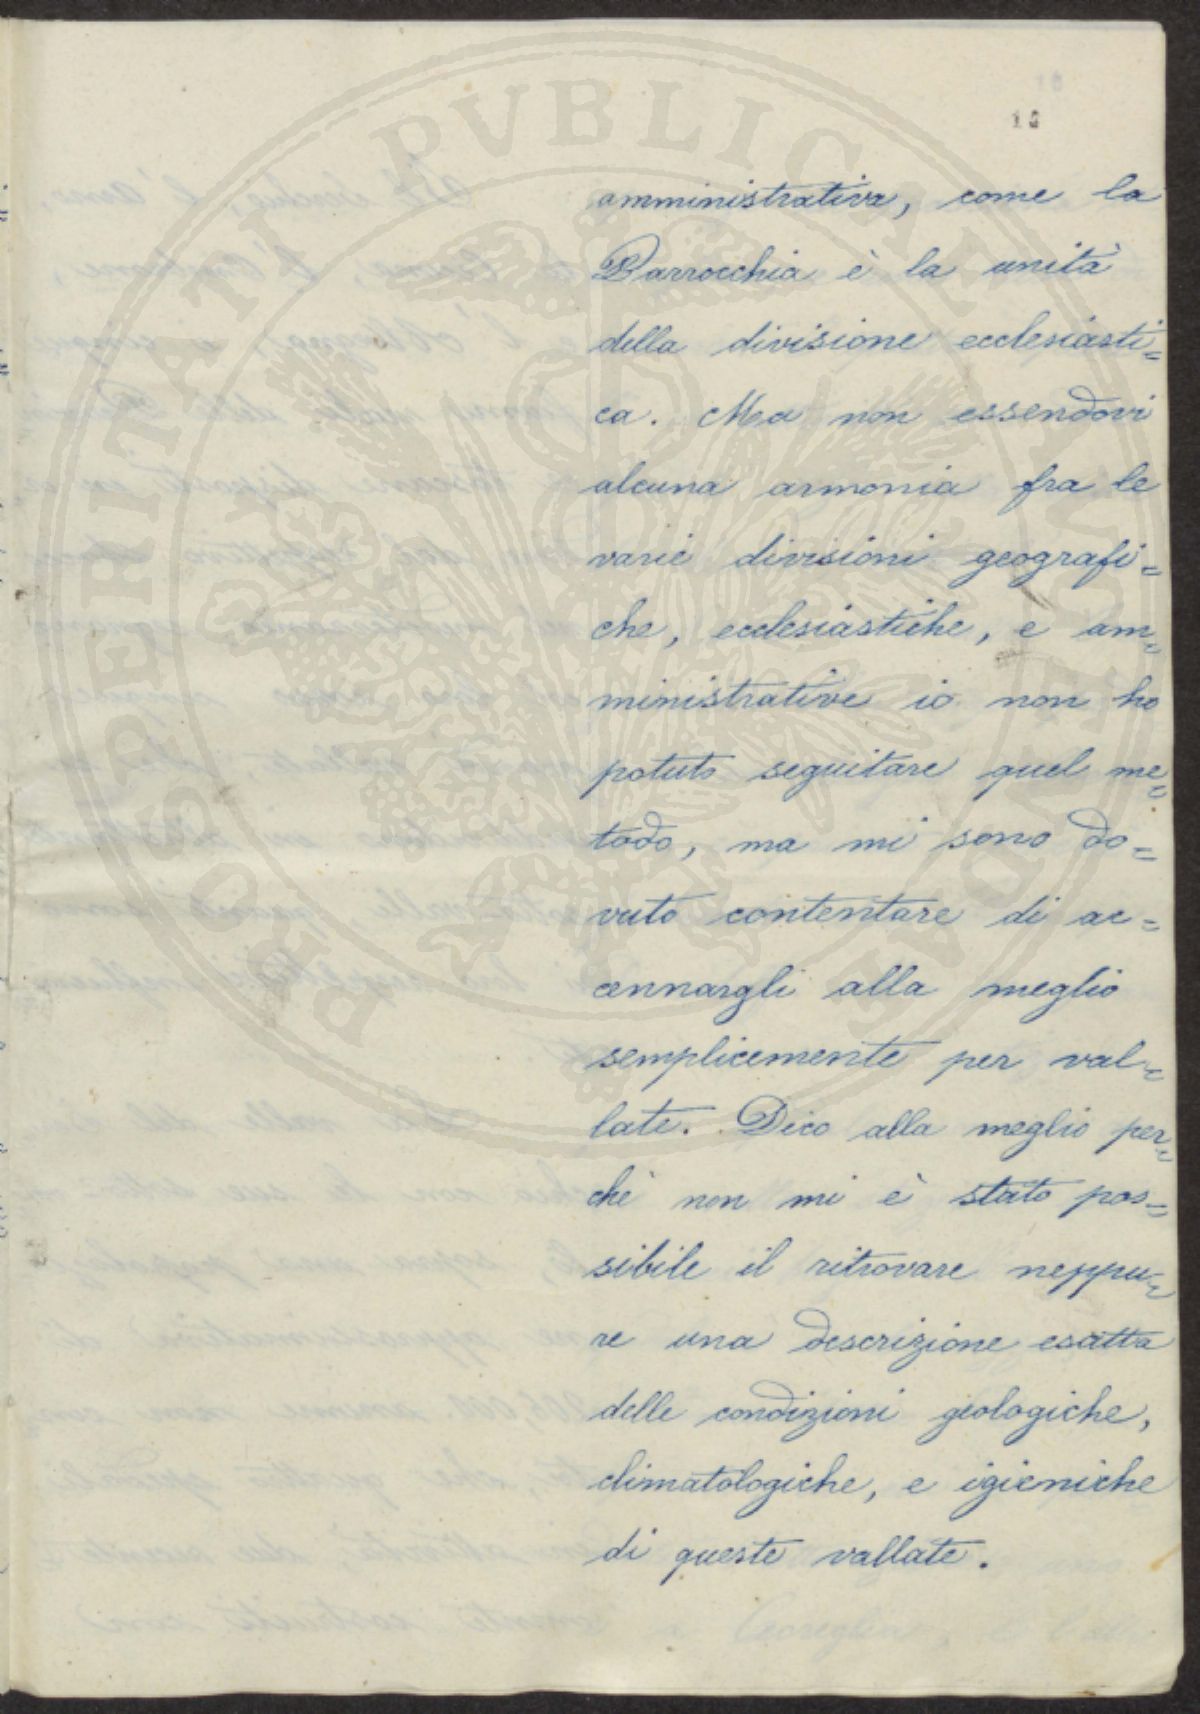 amministrativa, come la
Parrocchia è la unità
della divisione ecclesiasti=
ca. Ma non essendovi
alcuna armonia fra le
varie divisioni geografi=
che, ecclesiastiche, e am=
ministrative io non ho
potuto seguitare quel me=
todo, ma mi sono do=
vuto contentare di ac=
cennargli alla meglio
semplicemente per val=
late. Dico alla meglio per=
chè non mi è stato pos=
sibile il ritrovare neppu=
re una descrizione esatta
delle condizioni geologiche,
climatologiche, e igieniche
di queste vallate.
PROSPERITATI PVBLICAE AVGENDAE